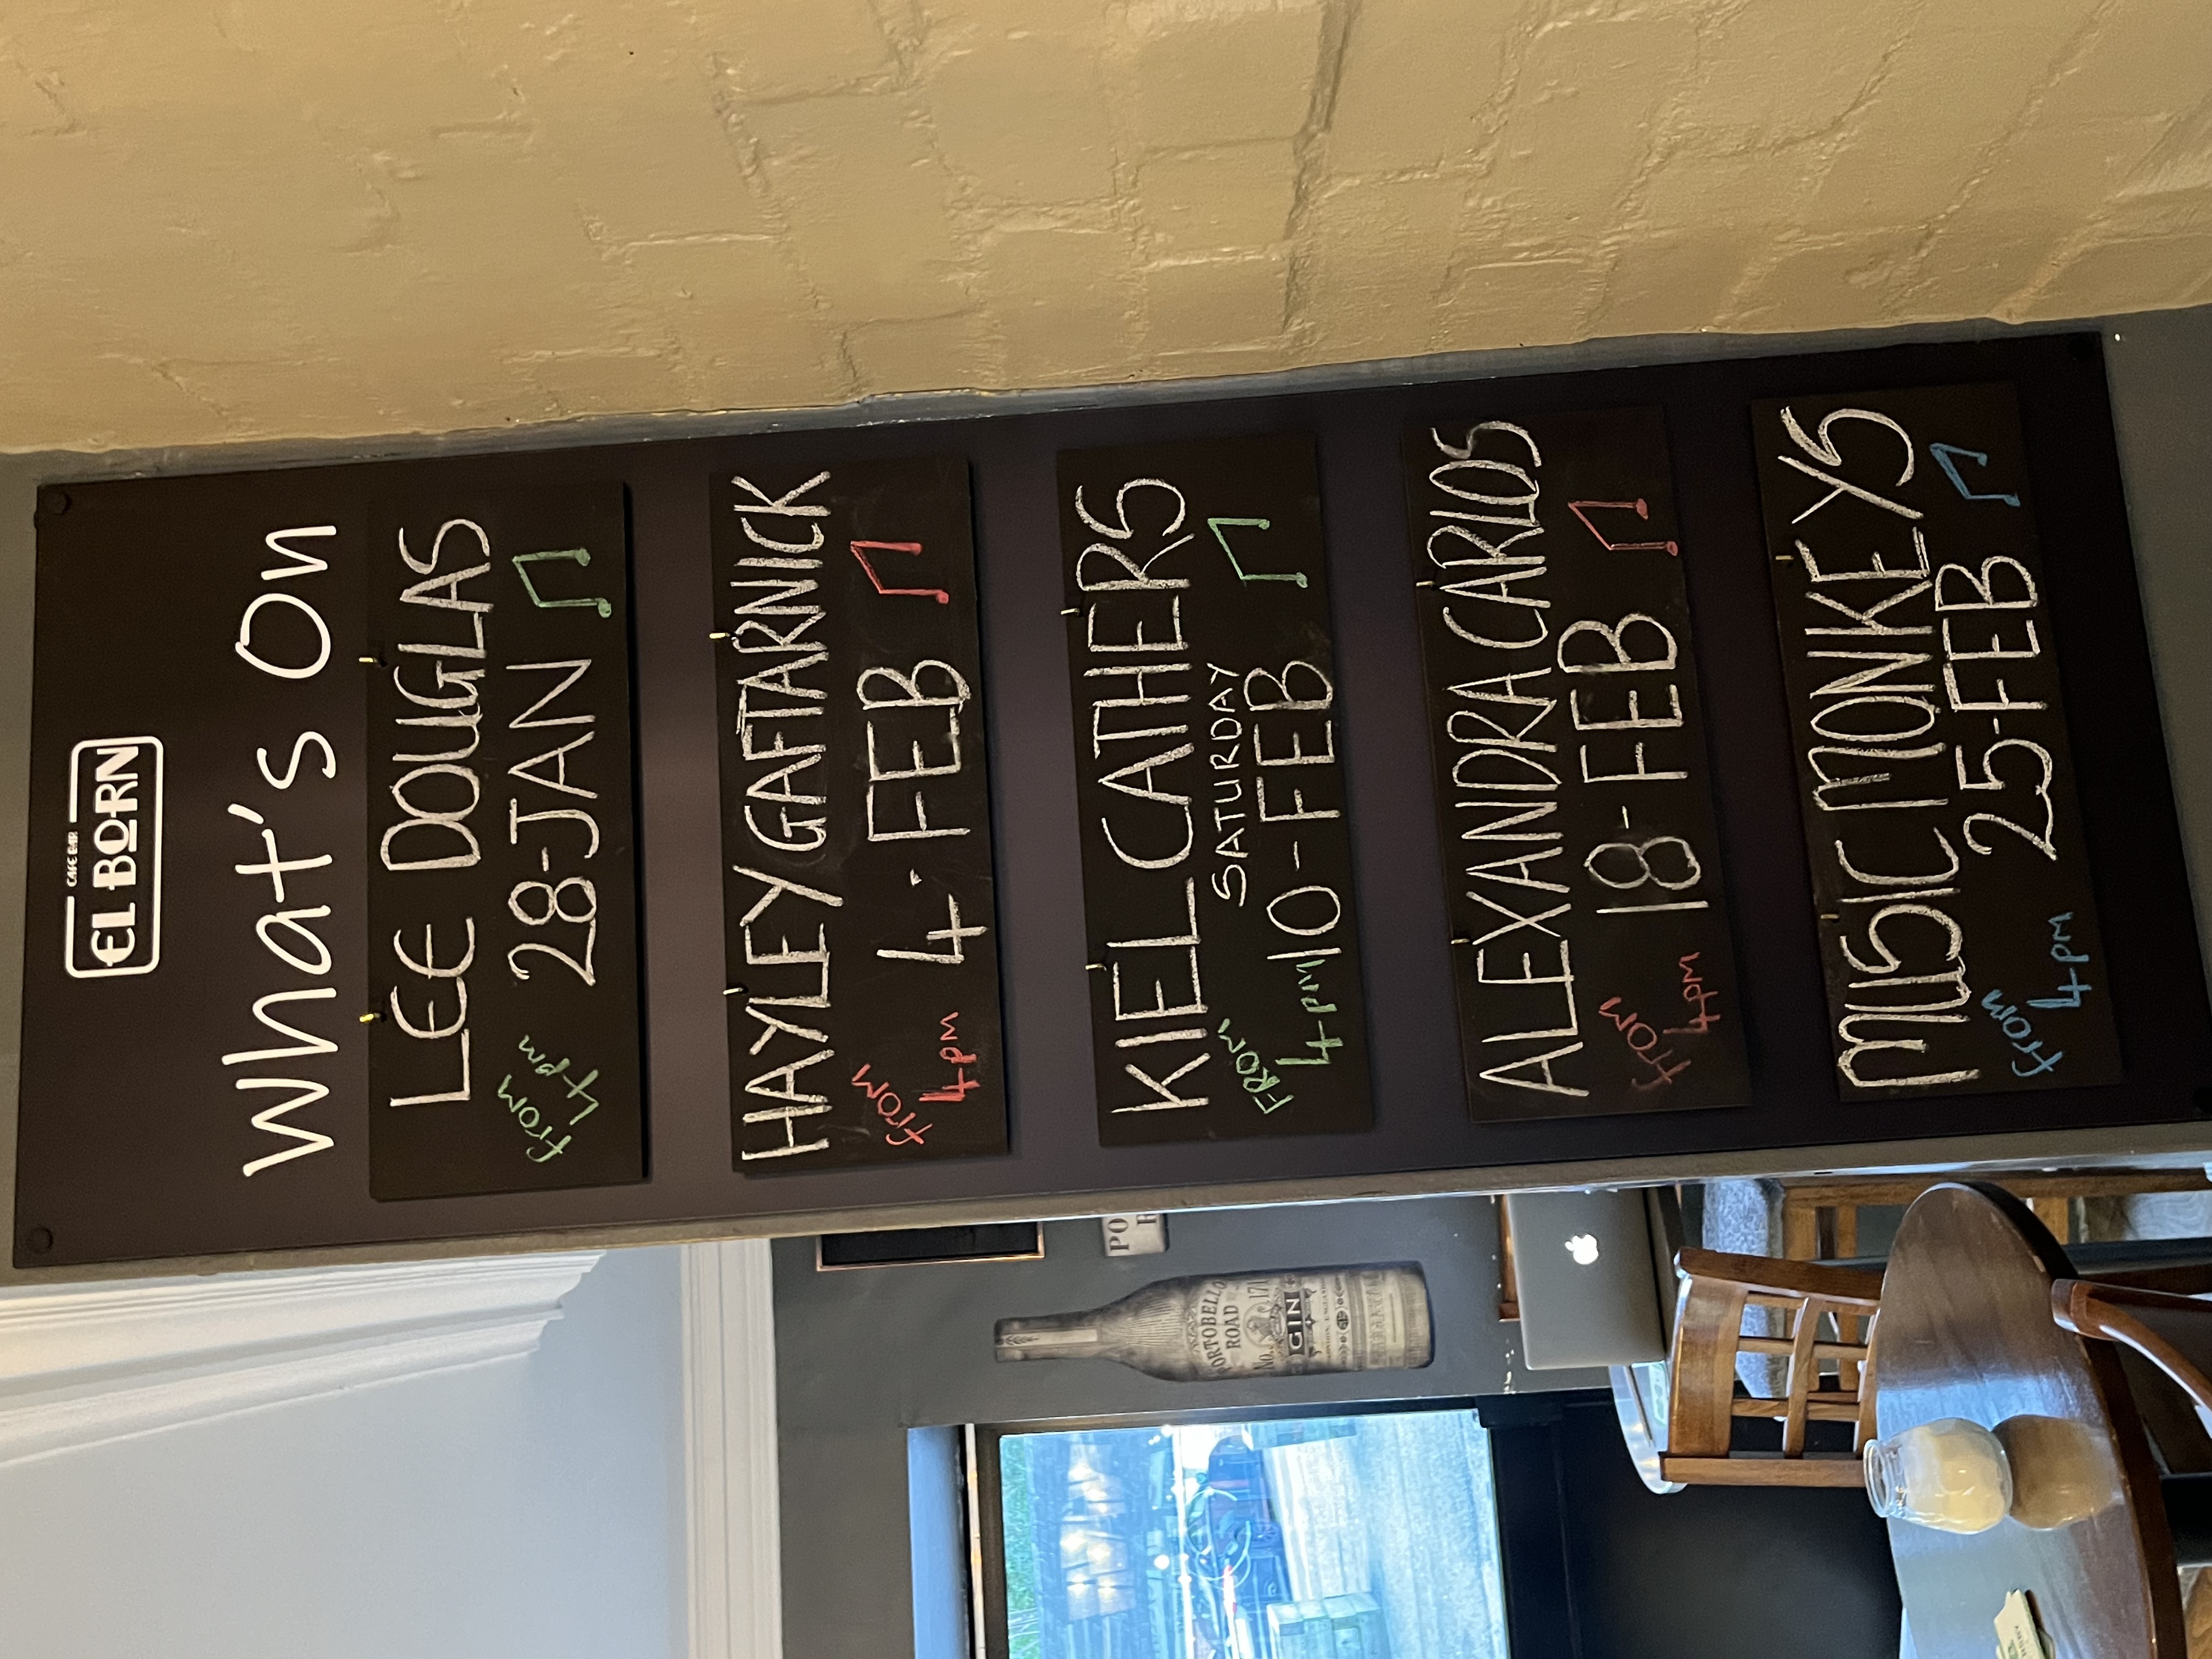 CAFE BAR
EL BORN
What's On
LEE DOUGLAS
from 4pm
28-JAN
HAYLEY GAFTARNICK
from 4pm
4-FEB
KIEL CATHERS
SATURDAY
FROM 4pm
10-FEB
ALEXANDRA CARLOS
from 4pm
18-FEB
MUSIC MONKEYS
from 4pm
25-FEB
PO
PORTOBELLO
ROAD
No. 171
GIN
LONDON, ENGLAND